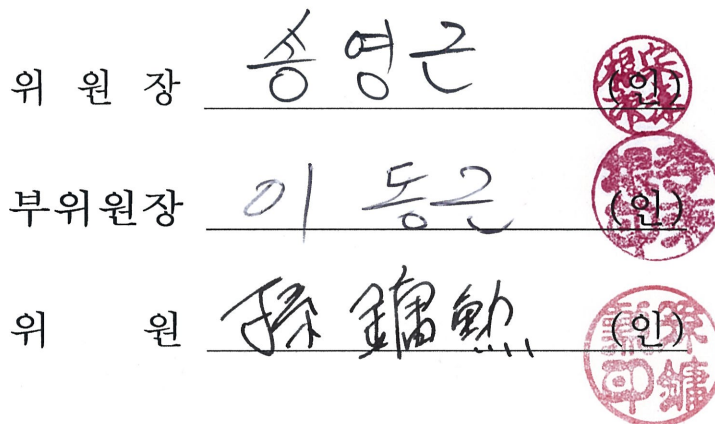 위 원 장 송영근 (인)
부위원장 이동근 (인)
위 원 孫鏞勲 (인)